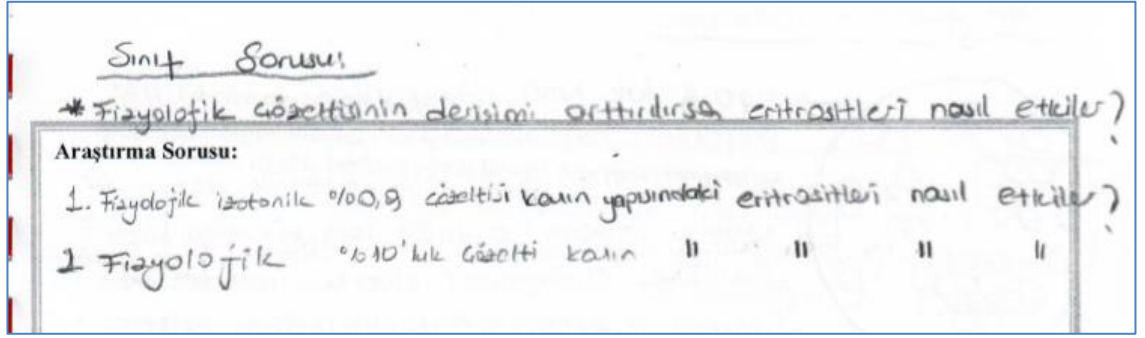 Sınıf Sorusu:
* Fizyolojik Çözeltisinin derişimi arttırdırsa eritrositleri nasıl etkiler?
Araştırma Sorusu:
1. Fizyolojik izotonik %0,9 çözeltisi kanın yapısındaki eritrositleri nasıl etkiler?
2 Fizyolojik %10'luk Çözelti kanın " " " "